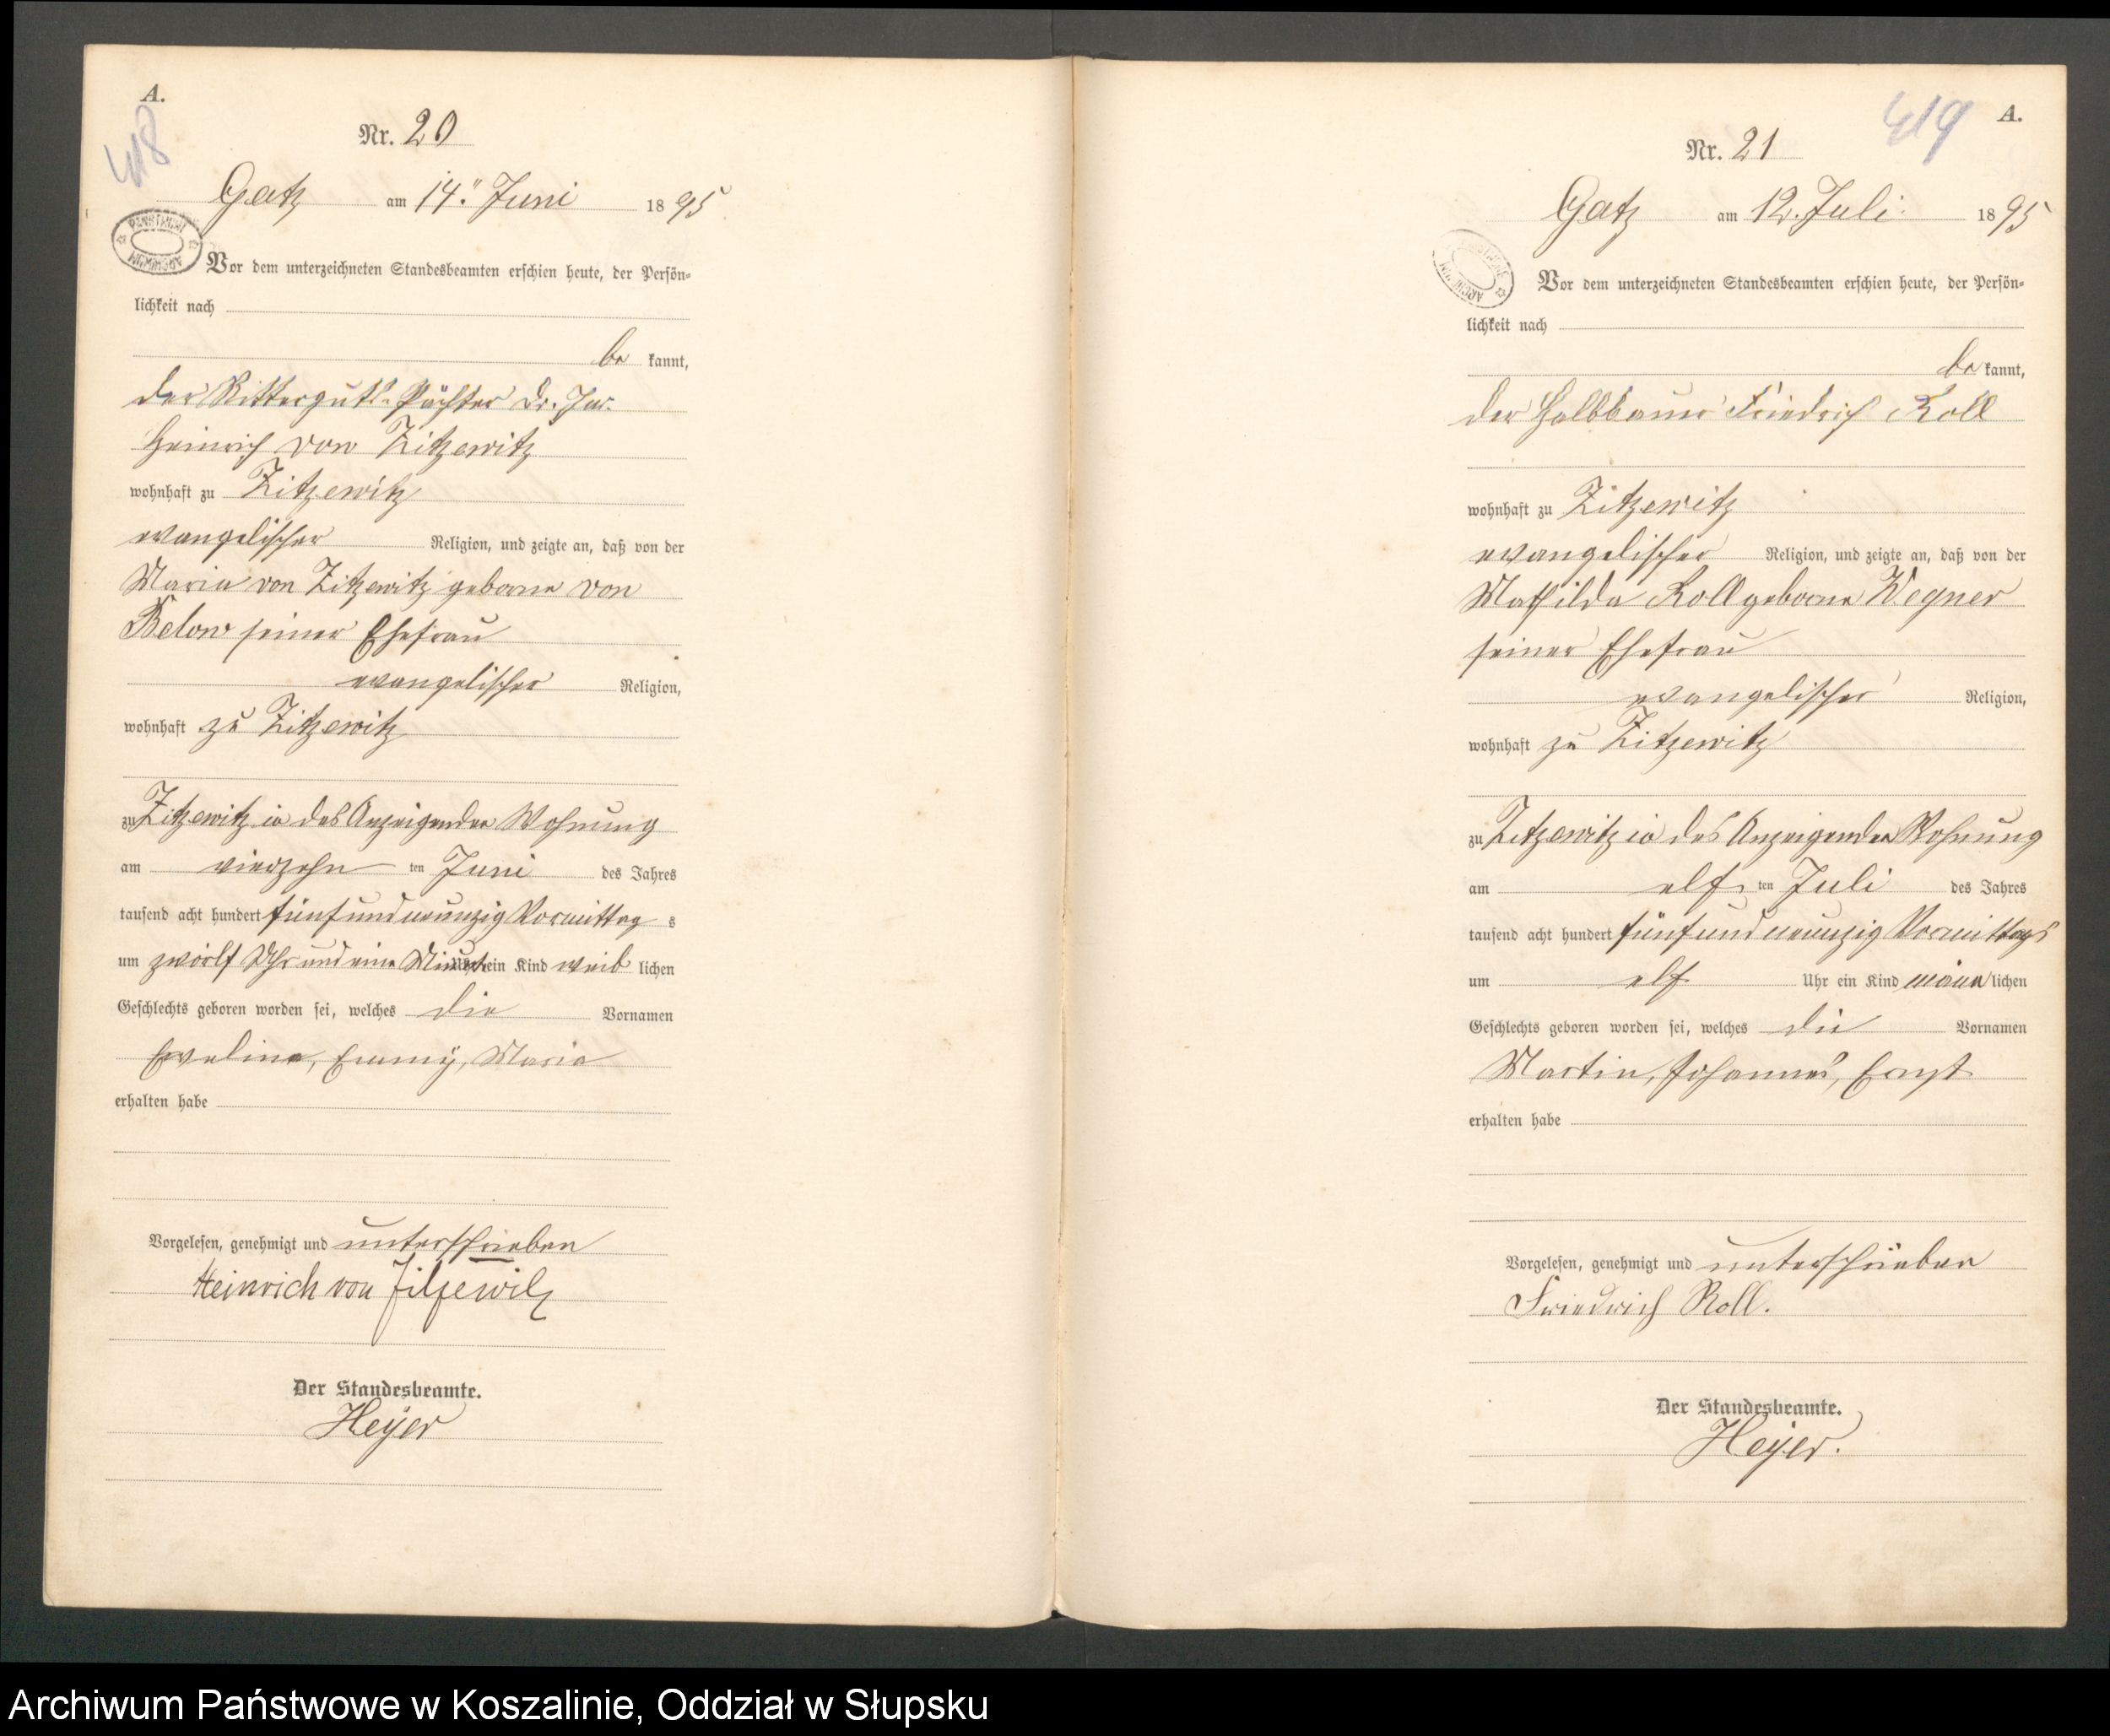 A.
418
Nr. 20
Gatz am 14. Juni 1895
Vor dem unterzeichneten Standesbeamten erschien heute, der Persön-
lichkeit nach
be kannt,
der Ritterguts-Pächter Dr. Jur.
Heinrich von Zitzewitz
wohnhaft zu Zitzewitz
evangelischer Religion, und zeigte an, daß von der
Maria von Zitzewitz geborne von
Below seiner Ehefrau
evangelischer Religion,
wohnhaft zu Zitzewitz
zu Zitzewitz in des Anzeigenden Wohnung
am vierzehn ten Juni des Jahres
tausend acht hundert fünfundneunzig Vormittag s
um zwölf Uhr und eine Minute ein Kind weib lichen
Geschlechts geboren worden sei, welches die Vornamen
Eveline, Emmy, Maria
erhalten habe
Vorgelesen, genehmigt und unterschrieben
Heinrich von Zitzewitz
Der Standesbeamte.
Heyer
419
A.
Nr. 21
Gatz am 12. Juli 1895
ARCHIWUM
Vor dem unterzeichneten Standesbeamten erschien heute, der Persön-
lichkeit nach
be kannt,
der Halbbauer Friedrich Roll
wohnhaft zu Zitzewitz
evangelischer Religion, und zeigte an, daß von der
Mathilde Roll geborne Wegner
seiner Ehefrau
evangelischer Religion,
wohnhaft zu Zitzewitz
zu Zitzewitz in des Anzeigenden Wohnung
am elf ten Juli des Jahres
tausend acht hundert fünfundneunzig Vormittags
um elf Uhr ein Kind männ lichen
Geschlechts geboren worden sei, welches die Vornamen
Martin, Johannes, Ernst
erhalten habe
Vorgelesen, genehmigt und unterschrieben
Friedrich Roll.
Der Standesbeamte.
Heyer.
Archiwum Państwowe w Koszalinie, Oddział w Słupsku